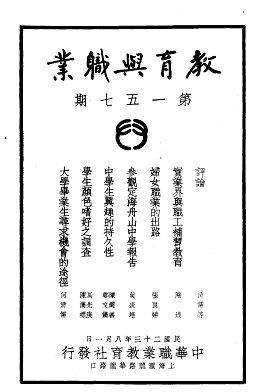 教育與職業
第一五七期
評論
實業界與職工補習教育
婦女職業的出路
參觀定海舟山中學報告
中學生興趣的持久性
學生顏色嗜好之調查
大學畢業生尋求機會的途徑
民國二十三年八月一日
中華職業教育社發行
上海環龍路華龍路口